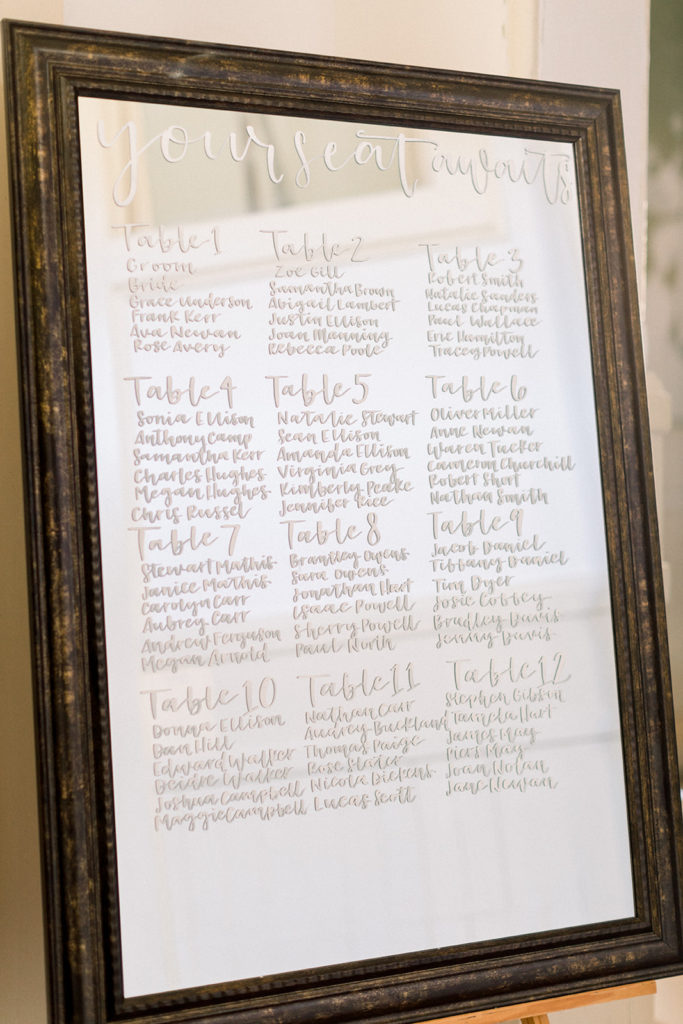 your seat awaits
Table 1
Groom
Bride
Grace Underson
Frank Kerr
Ava Newan
Rose Avery
Table 2
Zoe Gill
Samantha Brown
Abigail Lambert
Justin Ellison
Joan Manning
Rebecca Poole
Table 3
Robert Smith
Natalie Sanders
Lucas Chapman
Paul Wallace
Eric Hamilton
Tracey Powell
Table 4
Sonia Ellison
Anthony Camp
Samantha Kerr
Charles Hughes
Megan Hughes
Chris Russel
Table 5
Natalie Stewart
Sean Ellison
Amanda Ellison
Virginia Grey
Kimberly Peake
Jennifer Rice
Table 6
Oliver Miller
Anne Newan
Waren Tucker
Cameron Churchill
Robert Short
Nathan Smith
Table 7
Stewart Mathis
Janice Mathis
Carolyn Carr
Aubrey Carr
Andrew Ferguson
Megan Arnold
Table 8
Brantley Owens
Sara Owens
Jonathan Hart
Isaac Powell
Sherry Powell
Paul North
Table 9
Jacob Daniel
Tibbany Daniel
Tim Dyer
Josie Cobbey
Bradley Davis
Jenny Davis
Table 10
Donna Ellison
Dan Hill
Edward Walker
Deidre Walker
Joshua Campbell
Maggie Campbell
Table 11
Nathan Carr
Audrey Buckland
Thomas Paige
Rose Slater
Nicola Dickens
Lucas Scott
Table 12
Stephen Gibson
Tamela Hart
James May
Piers May
Joan Nolan
Jane Newan